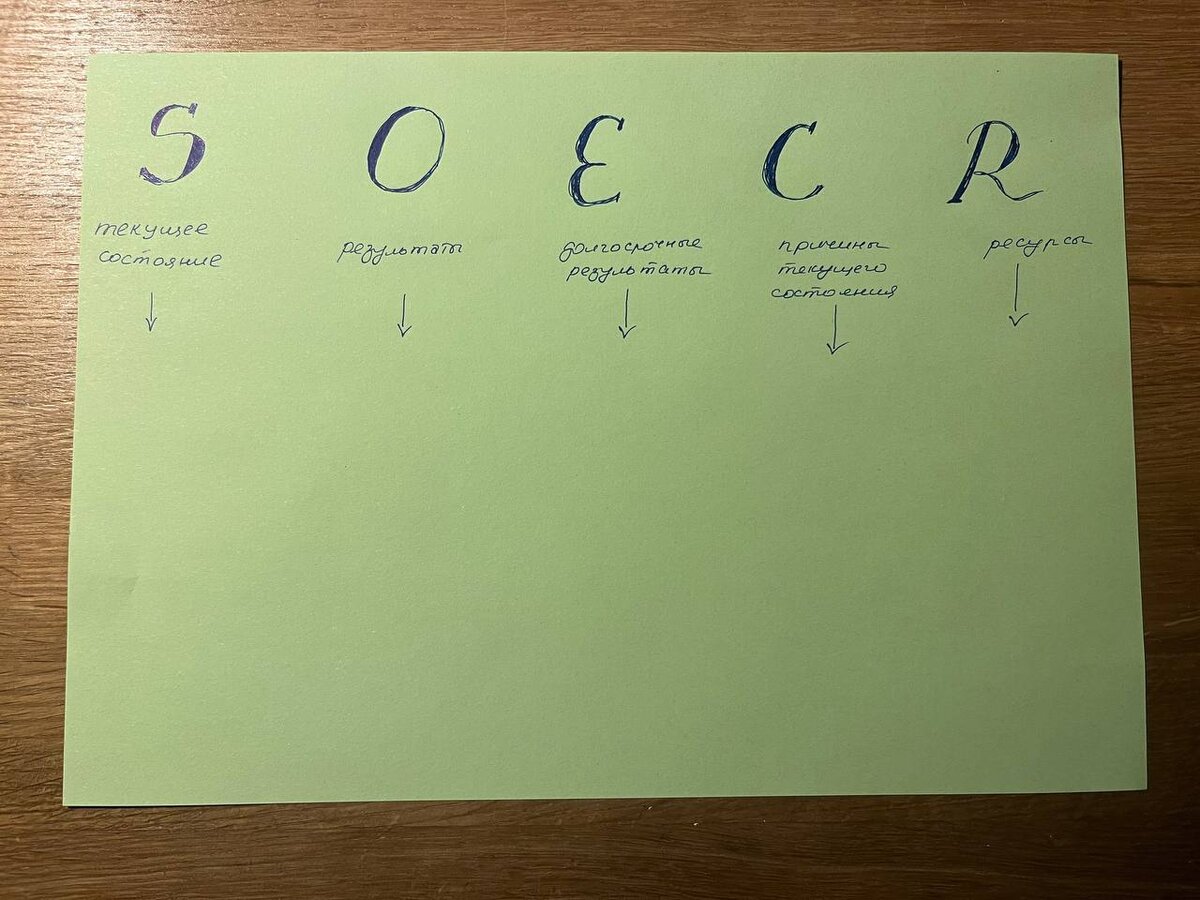 S O E C R
текущее
состояние
результаты
долгосрочные
результаты
причины
текущего
состояния
ресурсы